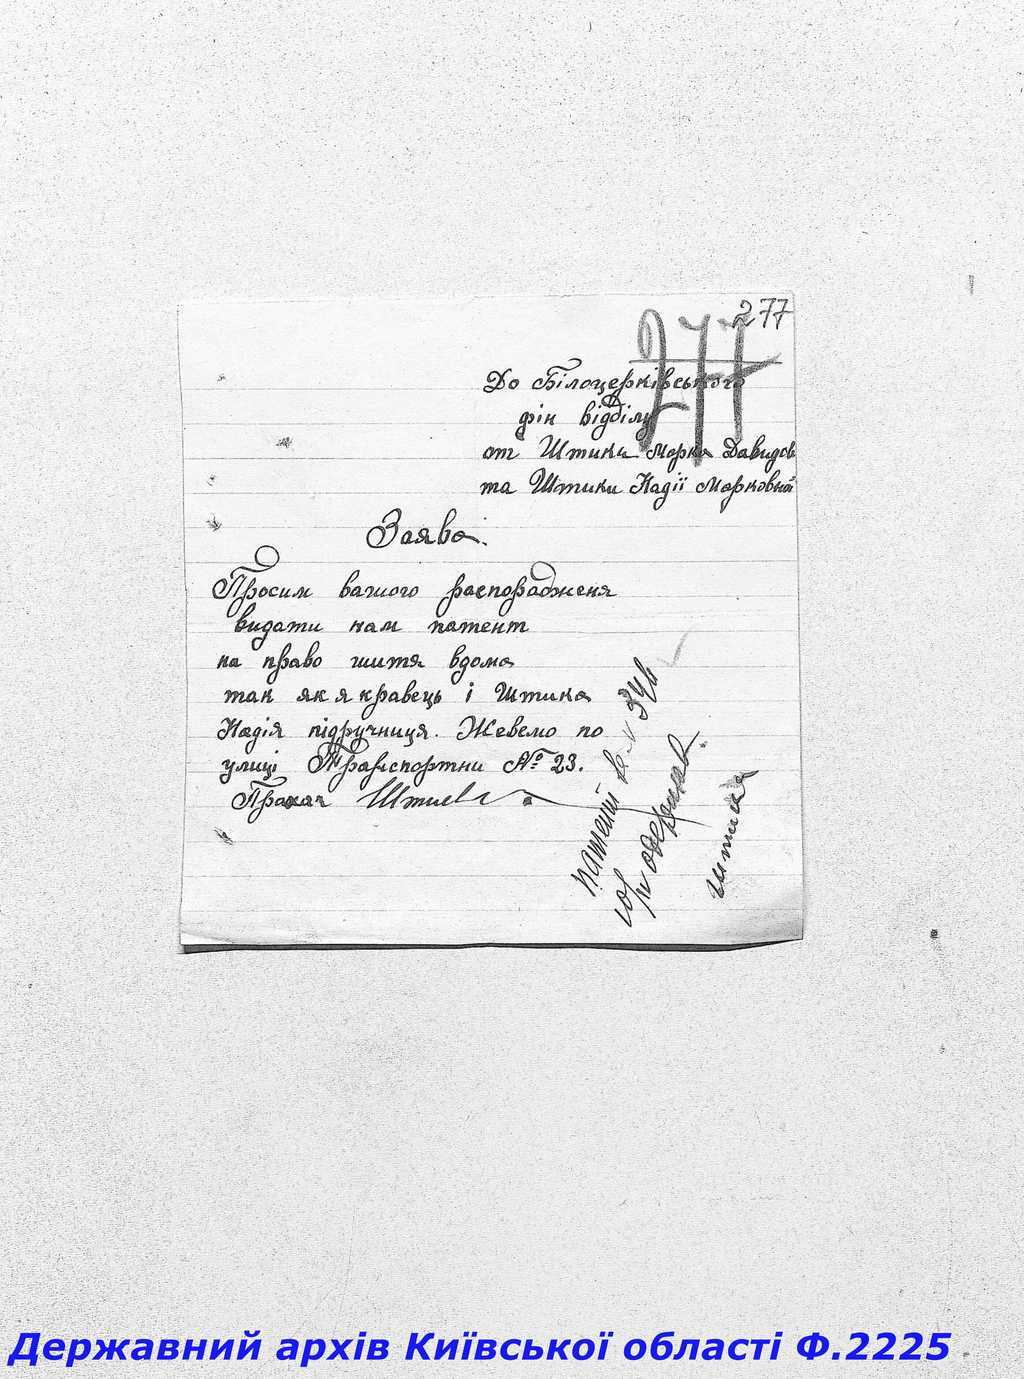 277
277
До Білоцерківського
фін відділу
от Штика Марка Давидов
та Штики Надії Марковної
Заява.
Просим вашого распорадженя
видати нам патент
на право шитя вдома
так як я кравець і Штика
Надія підручниця. Жевемо по
улиці Транспортни № 23.
Прохач
патент
одержав.
Штика
Державний архів Київської області Ф.2225